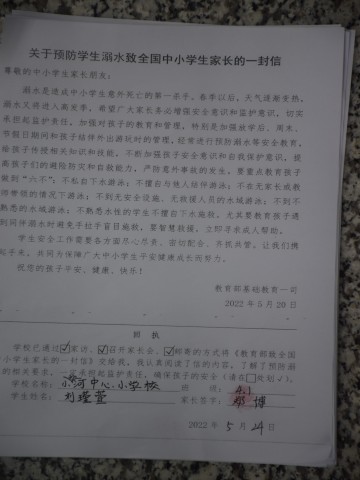 关于预防学生溺水致全国中小学生家长的一封信
尊敬的中小学生家长朋友：
溺水是造成中小学生意外死亡的第一杀手。春季以后，天气逐渐变热，
溺水又将进入高发季。希望广大家长务必增强安全意识和监护意识，切实
承担起监护责任，加强对孩子的教育和管理，特别是加强放学后、周末、
节假日期间和孩子结伴外出游玩时的管理，经常进行预防溺水等安全教育，
给孩子传授相关知识和技能，不断加强孩子安全意识和自我保护意识，提
高孩子们的避险防灾和自救能力，严防意外事故的发生。要重点教育孩子
做到“六不”：不私自下水游泳；不擅自与他人结伴游泳；不在无家长或教
师带领的情况下游泳；不到无安全设施、无救援人员的水域游泳；不到不
熟悉的水域游泳；不熟悉水性的学生不擅自下水施救。尤其要教育孩子遇
到同伴溺水时避免手拉手盲目施救，要智慧救援，立即寻求成人帮助。
学生安全工作需要各方面尽心尽责、密切配合、齐抓共管。让我们携
起手来，共同为保障广大中小学生平安健康成长而努力。
祝您的孩子平安、健康、快乐！
教育部基础教育一司
2022 年 5 月 20 日
回 执
学校已通过☑家访、☑召开家长会、☑邮寄的方式将《教育部致全国
小学生家长的一封信》交给我，我认真阅读了信的内容，了解了预防溺
的相关要求，一定承担起监护责任，确保孩子的安全（请在□处划√）。
学校名称：小河中心小学校 班 级：4.1
学生姓名：刘瑾萱 家长签字：邓 博
2022 年 5 月 24 日